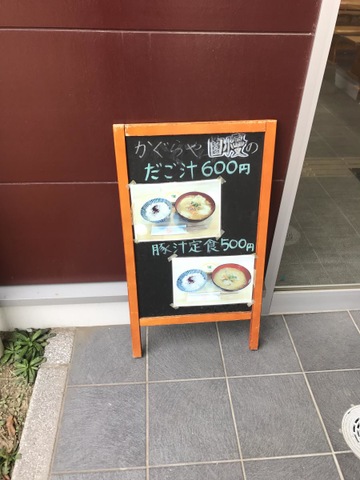 かぐらやの
だご汁600円
豚汁定食500円